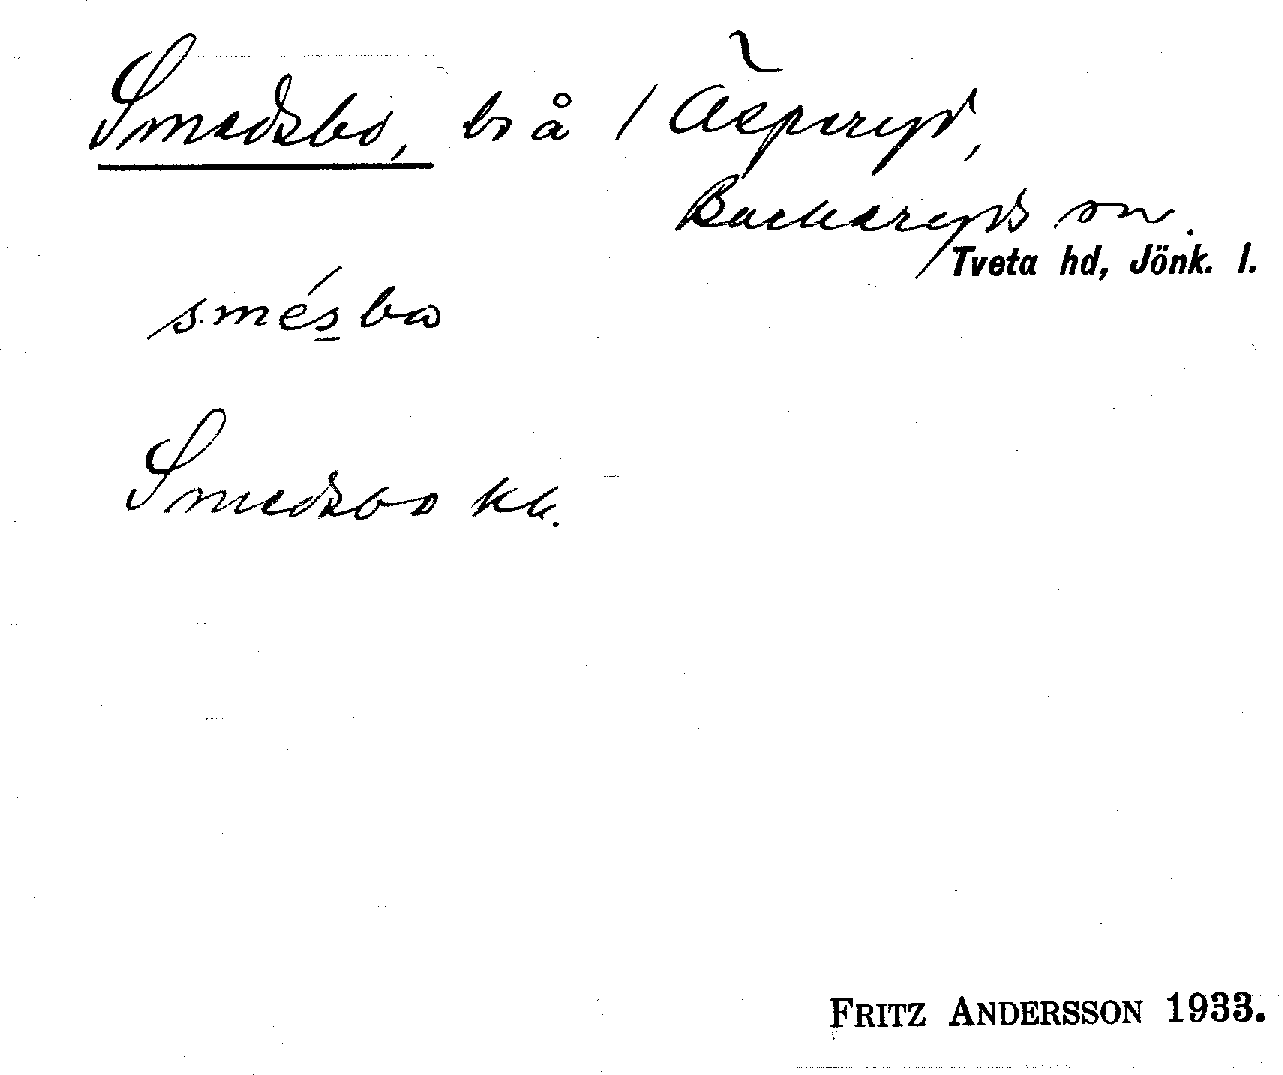 Smedsbo, bs å / Äsperyd,
Backaryds sn.
Tveta hd, Jönk. l.
smésbo
Smedsbo kk.
FRITZ ANDERSSON 1933.